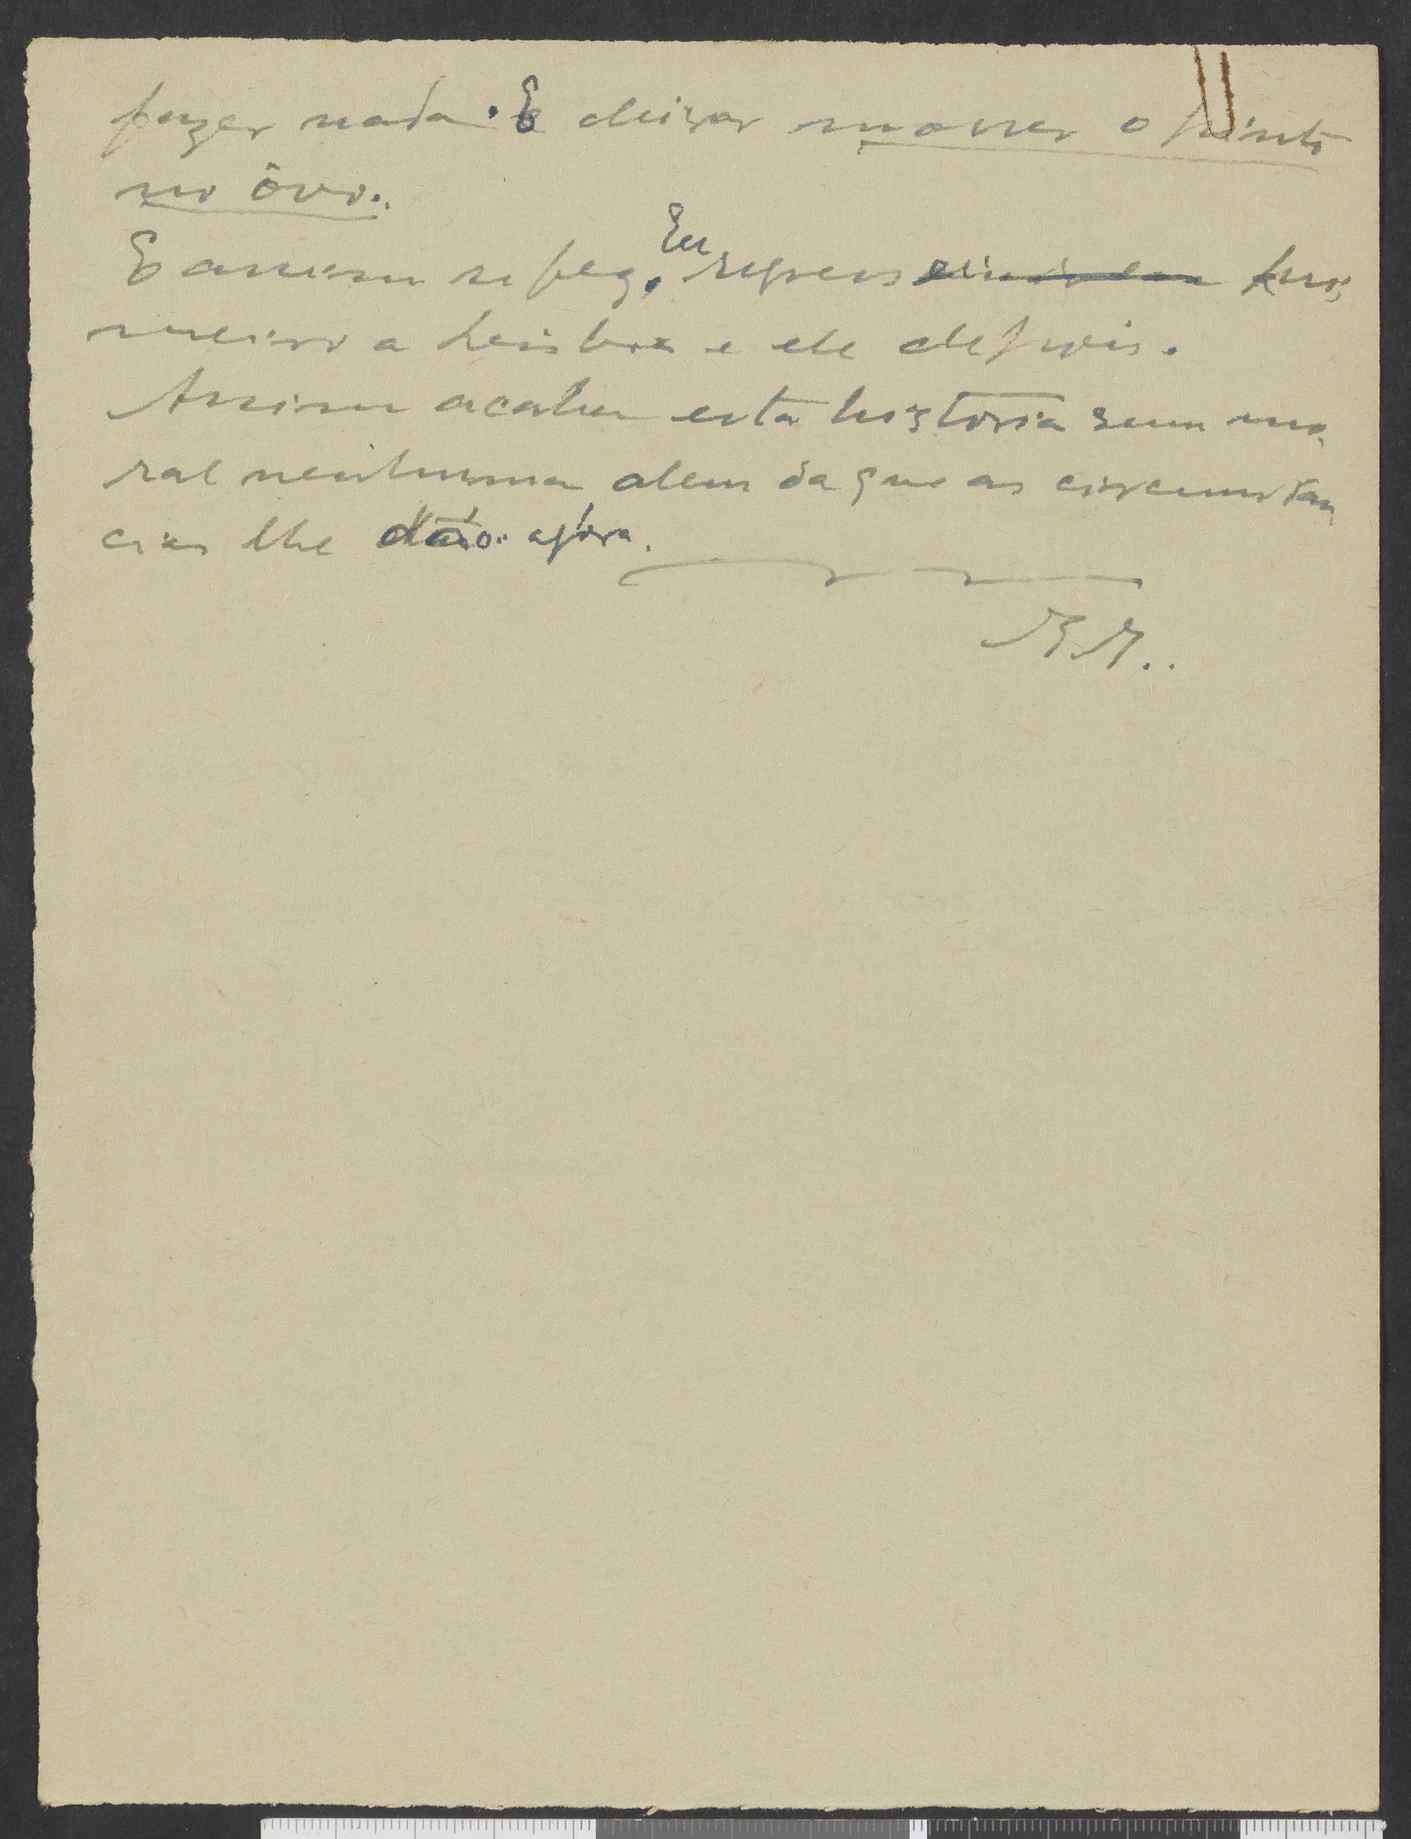 fazer nada. E deixar morrer o pinto
no ôvo..
E assim se fez. Eu regressei pri,
meiro a Lisboa e ele depois.
Assim acabou esta historia sem mo,
ral nenhuma alem da que as circumstan,
cias lhe dão agora.
M.M..